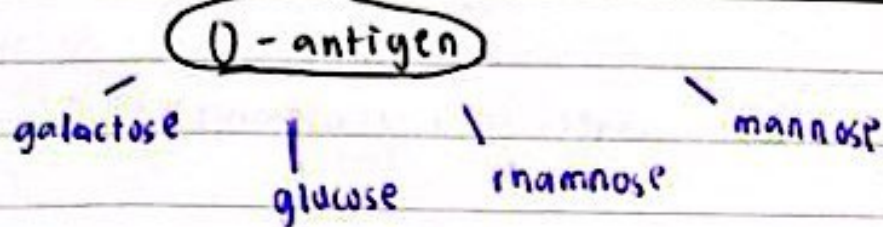 O - antigen
galactose
glucose
rhamnose
mannose